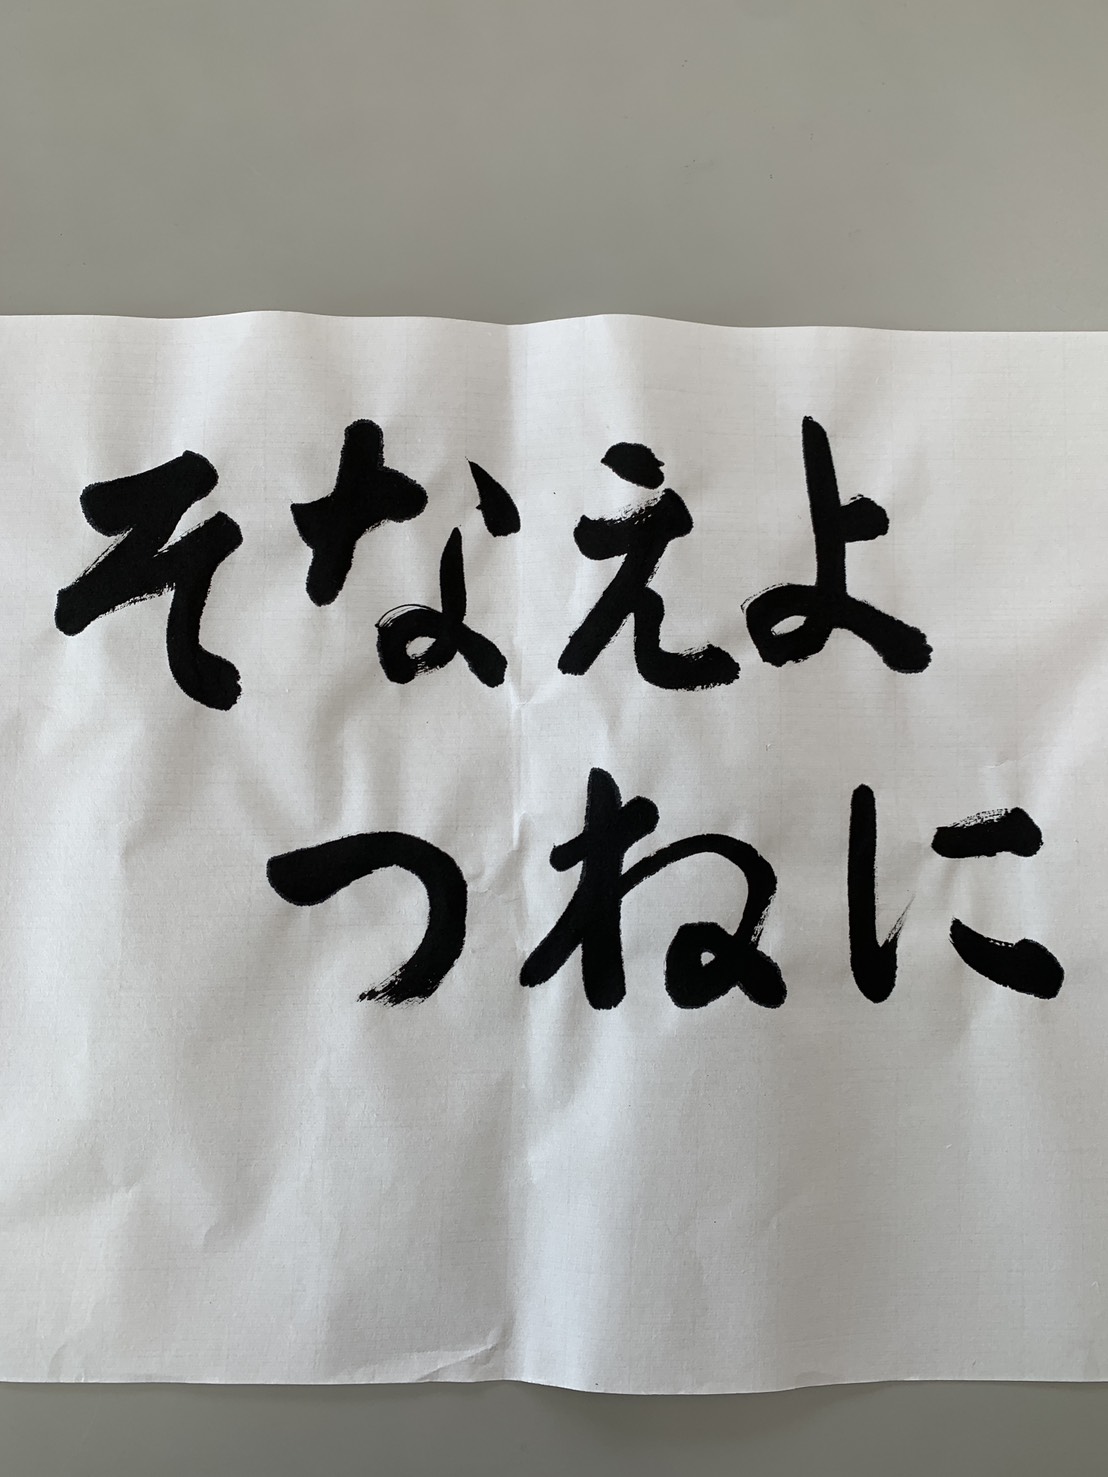 そなえよ
つねに